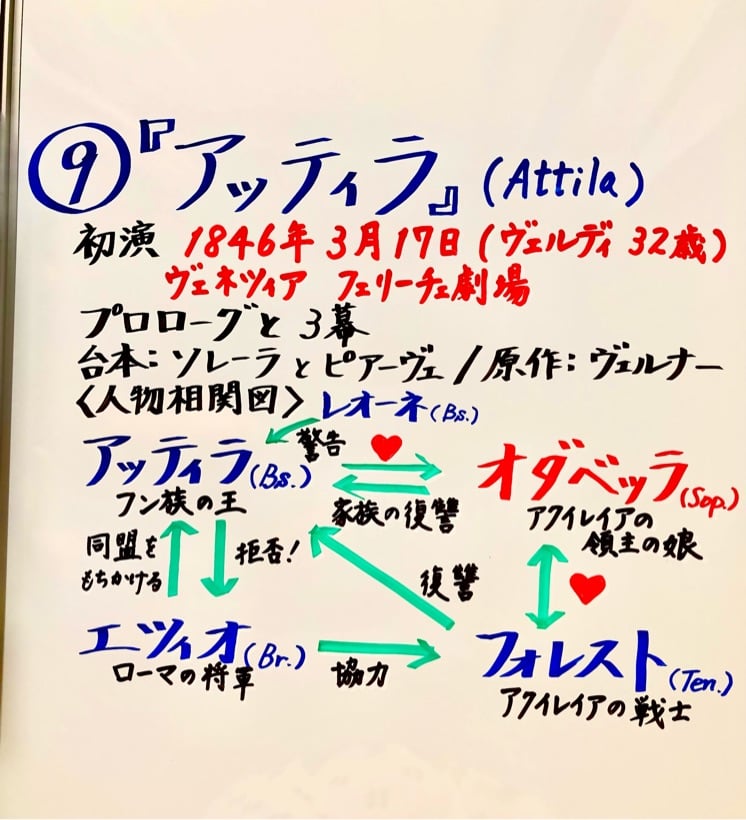 ⑨『アッティラ』(Attila)
初演 1846年3月17日(ヴェルディ 32歳)
ヴェネツィア フェリーチェ劇場
プロローグと3幕
台本:ソレーラとピアーヴェ/原作:ヴェルナー
〈人物相関図〉 レオーネ(Bs.)
警告
アッティラ(Bs.)
フン族の王
オダベッラ(Sop.)
アクイレイアの
領主の娘
家族の復讐
同盟を
もちかける
拒否!
復讐
エツィオ(Br.)
ローマの将軍
協力
フォレスト(Ten.)
アクイレイアの戦士